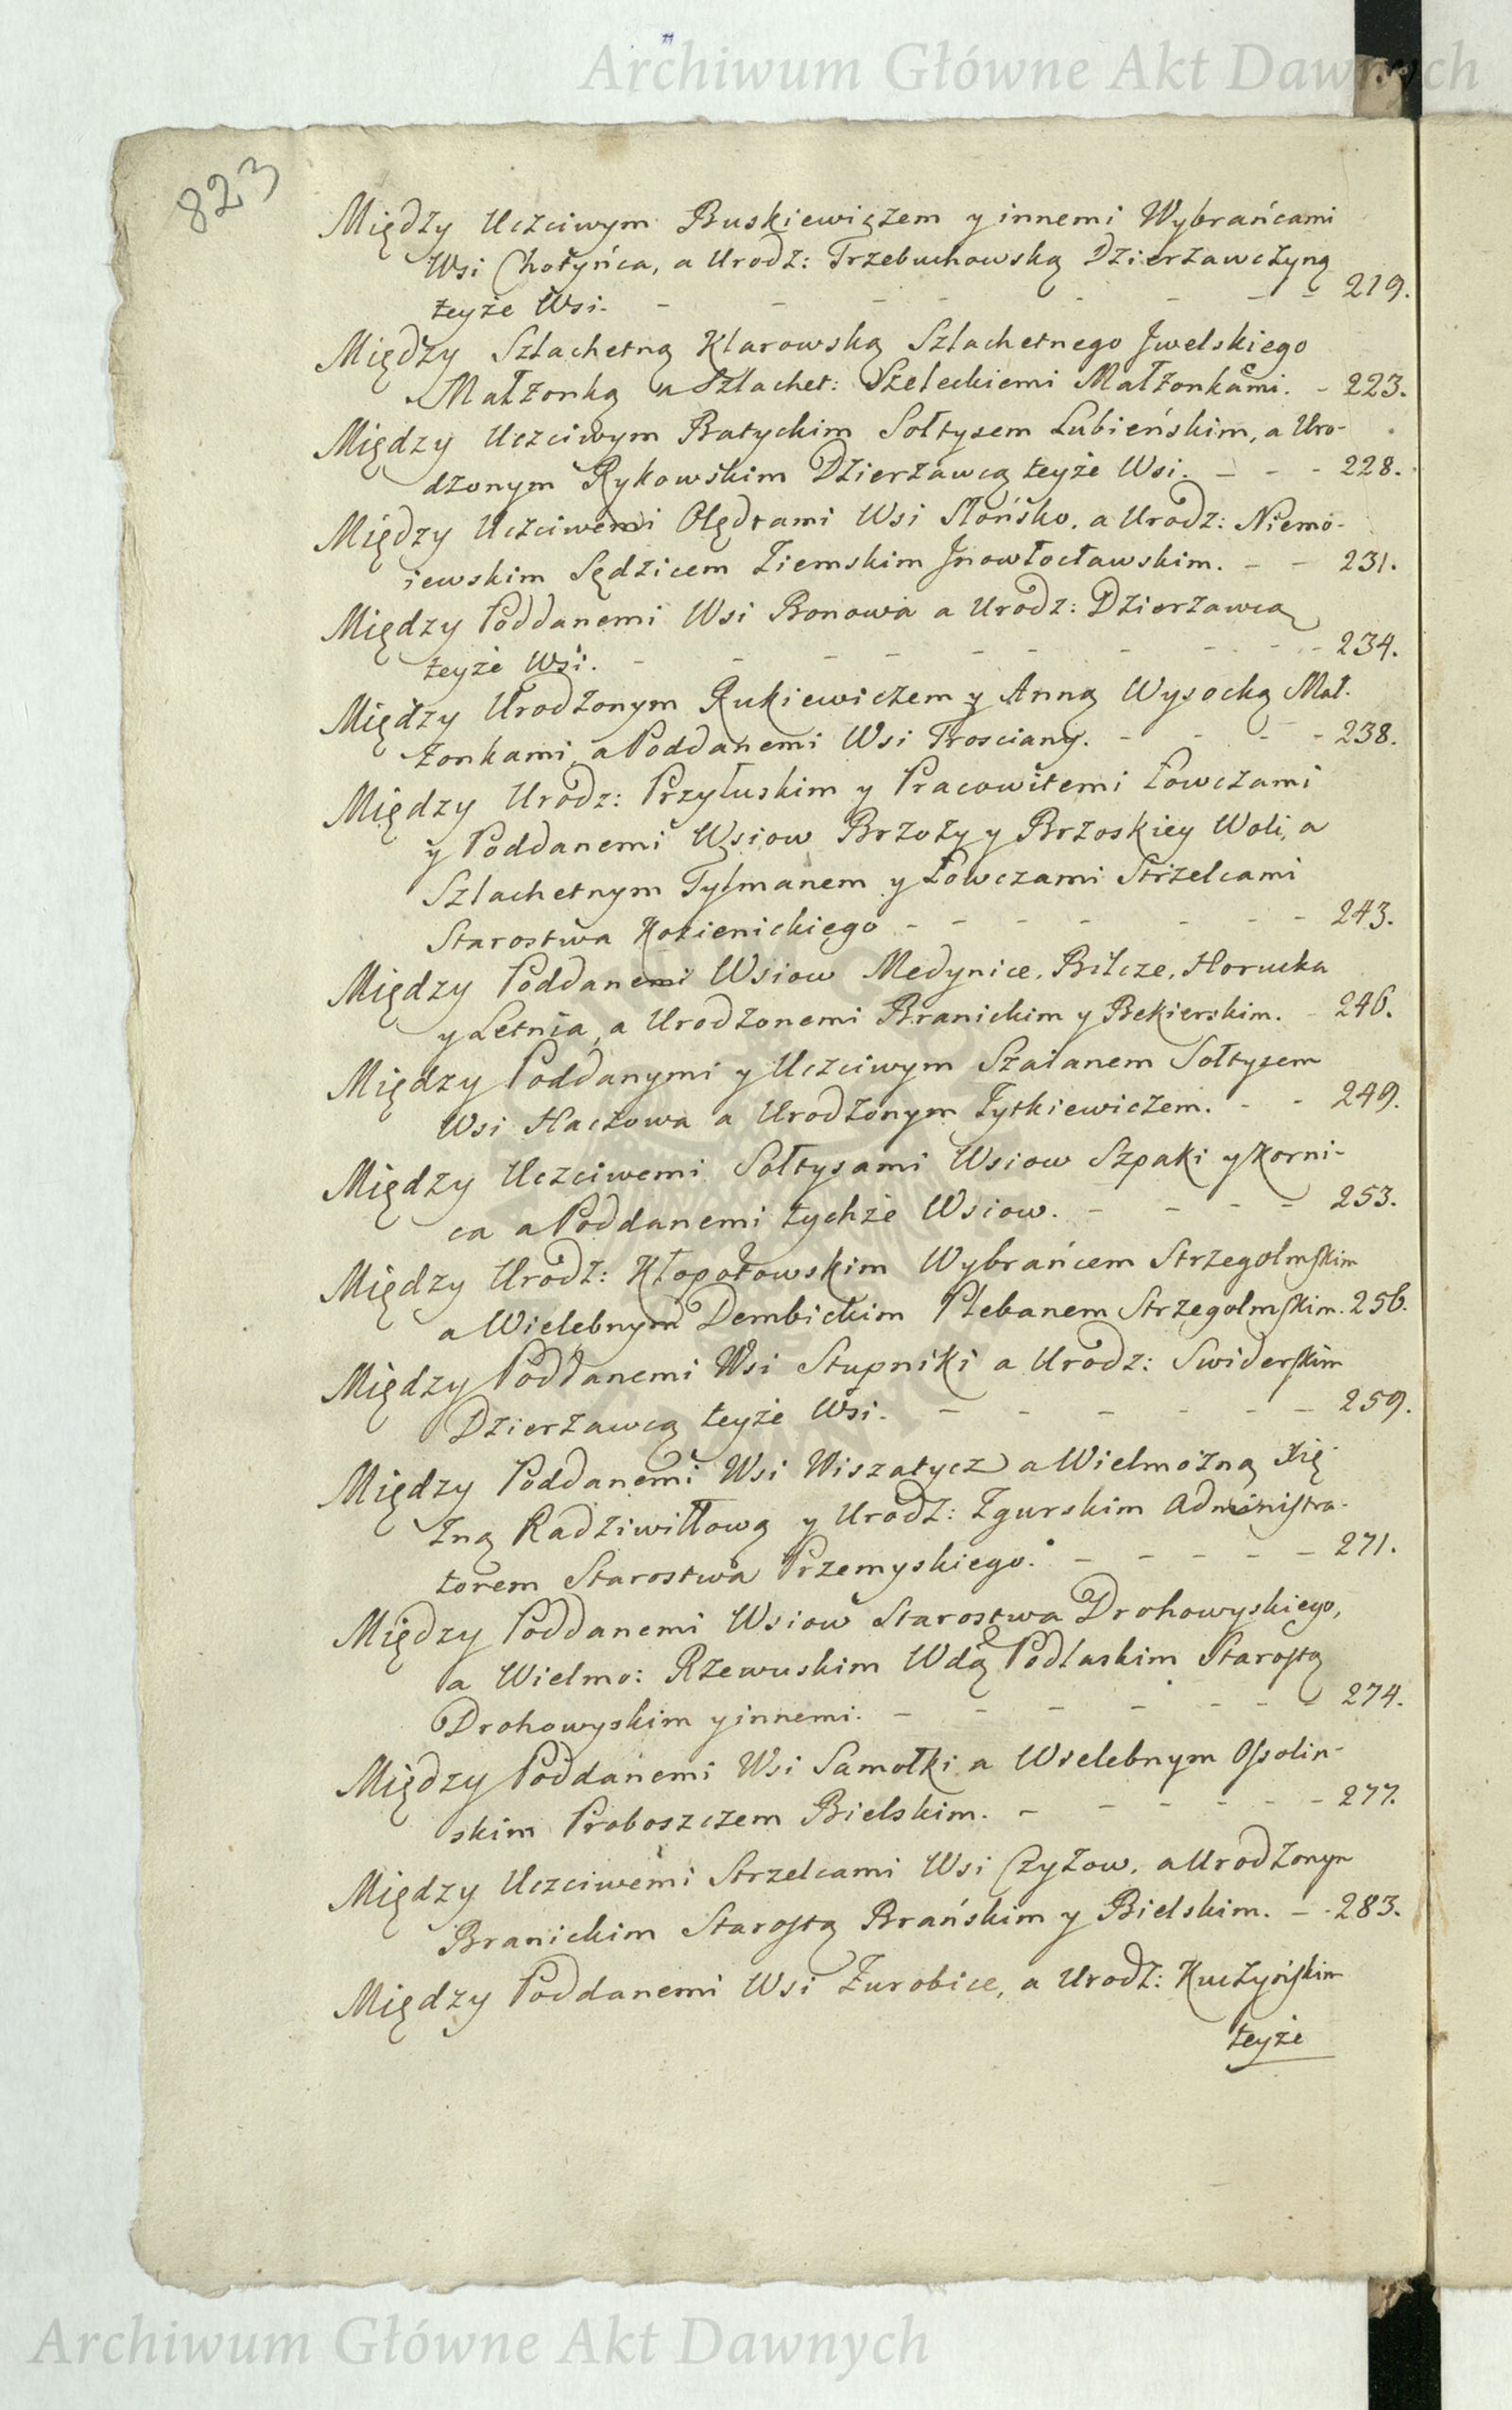 Archiwum Główne Akt Dawnych
823
Między Uczciwym Buskiewiczem y innemi Wybrańcami
Wsi Chotyńca, a Urodz: Trzebuchowską Dzierzawczyną
teyże Wsi. - - - - - - - - 219.
Między Szlachetną Klarowską Szlachetnego Jwelskiego
Małżonką a Szlachet: Szeleckiemi Małżonkami. - 223.
Między Uczciwym Batyckim Sołtysem Lubieńskim, a Uro-
dzonym Rykowskim Dzierzawcą teyże Wsi. - - - 228.
Między Uczciwemi Olędrami Wsi Słońsko, a Urodz: Niemo-
iewskim Sędzicem Ziemskim Jnowłocławskim. - - 231.
Między Poddanemi Wsi Bonowa a Urodz: Dzierzawcą
teyże Wsi. - - - - - - - - - 234.
Między Urodzonym Rukiewiczem y Anną Wysocką Mał-
żonkami, a Poddanemi Wsi Trosciany. - - - - 238.
Między Urodz: Przyłuskim y Pracowitemi Łowczami
y Poddanemi Wsiow Brzozy y Brzoskiey Woli, a
Szlachetnym Tylmanem y Łowczami Strzelcami
Starostwa Kozienickiego - - - - - - - 243.
Między Poddanemi Wsiow Medynice, Bilcze, Horucka
y Letnia, a Urodzonemi Branickim y Bekierskim. - 246.
Między Poddanymi y Uczciwym Szaianem Sołtysem
Wsi Haczowa a Urodzonym Zytkiewiczem. - - 249.
Między Uczciwemi Sołtysami Wsiow Szpaki y Korni-
ca a Poddanemi tychże Wsiow. - - - - 253.
Między Urodz: Kłopotowskim Wybrańcem Strzegolmskim
a Wielebnym Dembickim Plebanem Strzegolmskim. 256.
Między Poddanemi Wsi Stupniki a Urodz: Swiderskim
Dzierzawcą teyże Wsi. - - - - - - 259.
Między Poddanemi Wsi Wiszatycz a Wielmożną Xię-
żną Radziwiłłową y Urodz: Zgurskim Administra-
torem Starostwa Przemyskiego. - - - - - 271.
Między Poddanemi Wsiow Starostwa Drohowyskiego,
a Wielmo: Rzewuskim Wdą Podlaskim Starostą
Drohowyskim y innemi. - - - - - - - 274.
Między Poddanemi Wsi Samołki a Wielebnym Ossolin-
skim Proboszczem Bielskim. - - - - - - 277.
Między Uczciwemi Strzelcami Wsi Czyżow, a Urodzonym
Branickim Starostą Brańskim y Bielskim. - - 283.
Między Poddanemi Wsi Żurobice, a Urodz: Kuczyńskim
teyże
Archiwum Główne Akt Dawnych